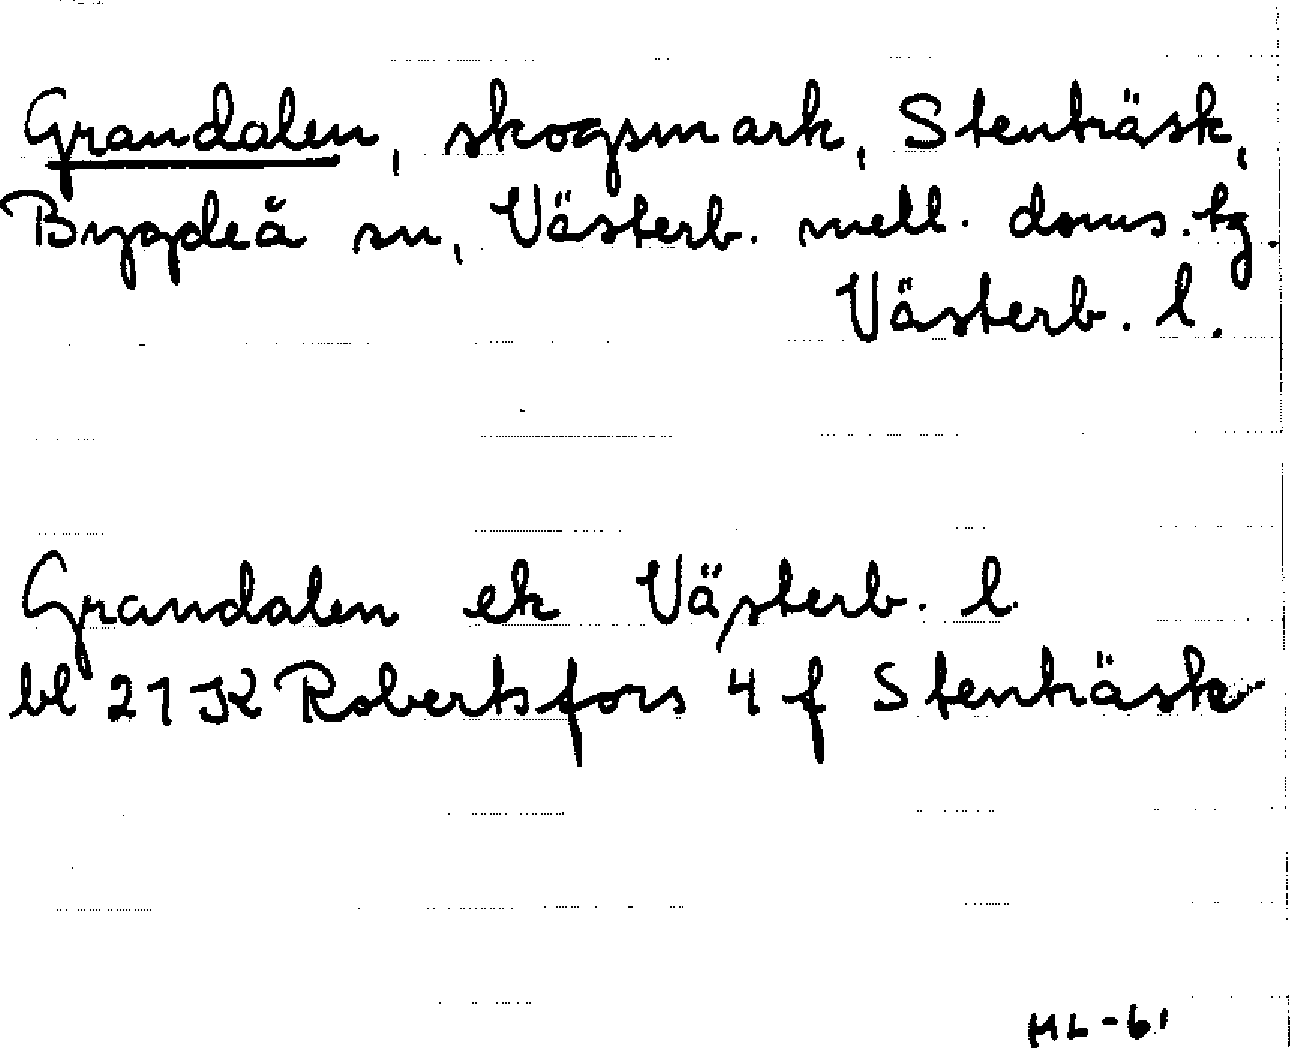 Grandalen, skogsmark, Stenträsk,
Bygdeå sn, Västerb. mell. doms. tg.
Västerb. l.
Grandalen ek Västerb. l.
bl 21 K Robertsfors 4 f Stenträsk
HL-61